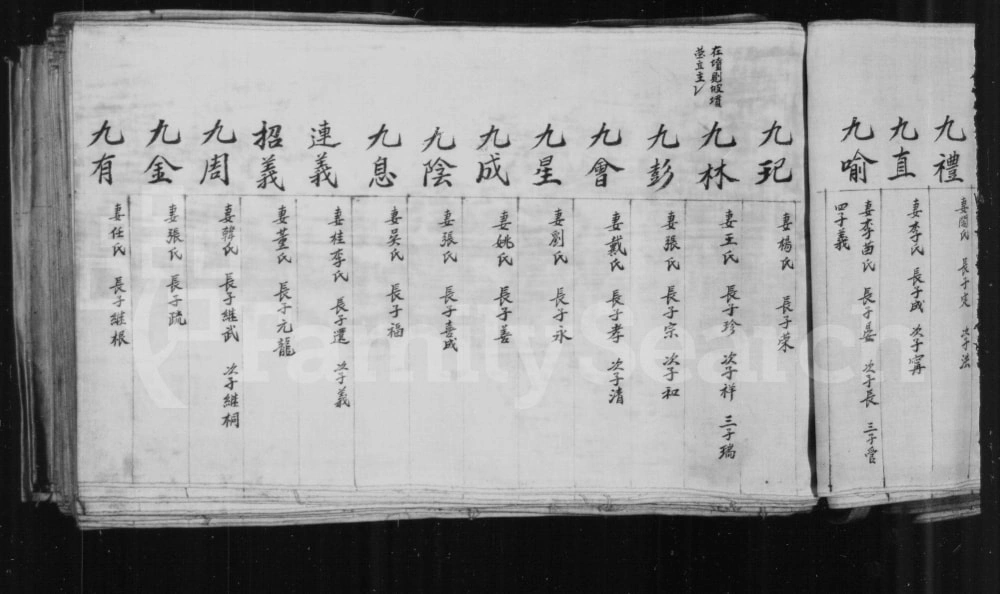 九禮
妻閻氏 長子定 次子法
九直
妻李氏 長子成 次子寧
九喻
妻李苗氏 長子晏 次子長 三子管
四子義
九玘
妻楊氏 長子荣
在墳則做墳
塋立主
九林
妻王氏 長子珍 次子祥 三子瑞
九彭
妻張氏 長子宗 次子和
九會
妻戴氏 長子孝 次子清
九星
妻劉氏 長子永
九成
妻姚氏 長子善
九陰
妻張氏 長子喜成
九息
妻吳氏 長子福
連義
妻桂李氏 長子還 次子義
招義
妻董氏 長子元龍
九周
妻韓氏 長子継武 次子継桐
九金
妻張氏 長子疏
九有
妻任氏 長子继根
FamilySearch